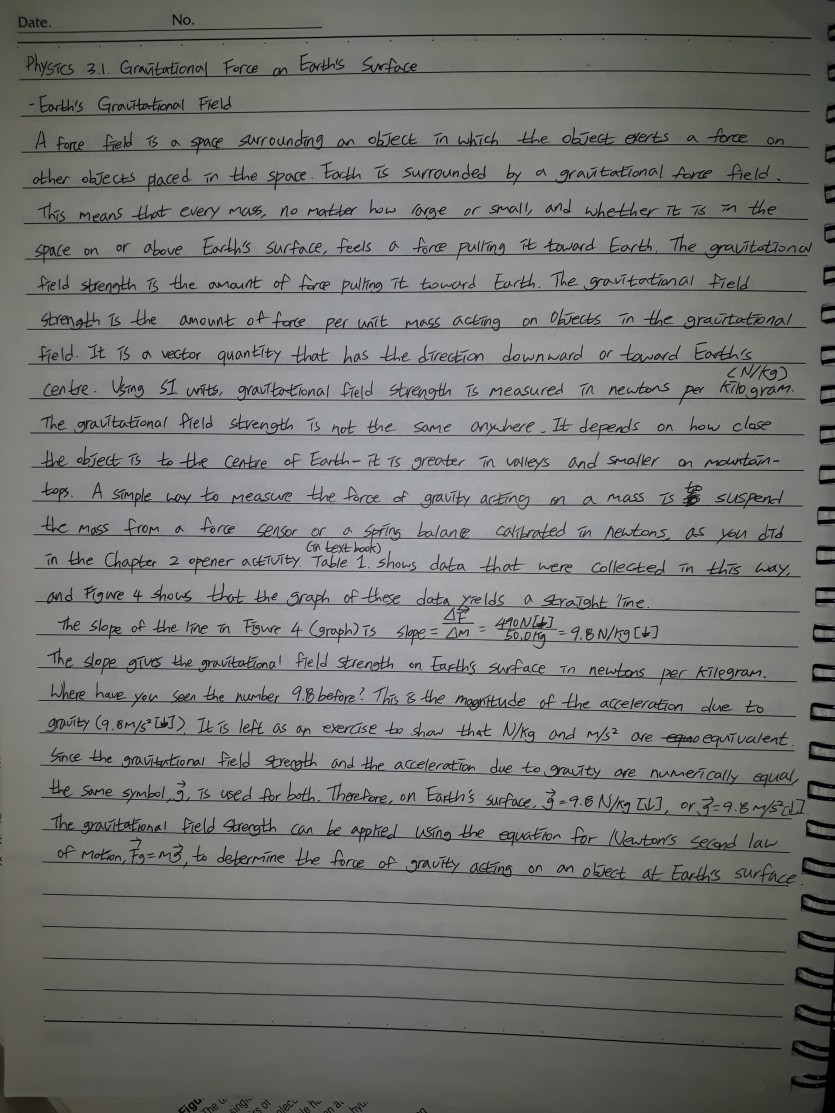 Date. No.
Physics 3.1. Gravitational Force on Earth's Surface
- Earth's Gravitational Field
A force field is a space surrounding an object in which the object exerts a force on
other objects placed in the space. Earth is surrounded by a gravitational force field.
This means that every mass, no matter how large or small, and whether it is in the
space on or above Earth's surface, feels a force pulling it toward Earth. The gravitational
field strength is the amount of force pulling it toward Earth. The gravitational field
strength is the amount of force per unit mass acting on objects in the gravitational
field. It is a vector quantity that has the direction downward or toward Earth's
(N/kg)
centre. Using SI units, gravitational field strength is measured in newtons per kilogram.
The gravitational field strength is not the same anywhere. It depends on how close
the object is to the centre of Earth - it is greater in valleys and smaller on mountain-
tops. A simple way to measure the force of gravity acting on a mass is to suspend
the mass from a force sensor or a spring balance calibrated in newtons, as you did
(in text book)
in the Chapter 2 opener activity. Table 1. shows data that were collected in this way,
and Figure 4 shows that the graph of these data yields a straight line.
The slope of the line in Figure 4 (graph) is slope = ΔF⃗/Δm = 490N[↓]/50.0kg = 9.8 N/kg [↓]
The slope gives the gravitational field strength on Earth's surface in newtons per kilegram.
Where have you seen the number 9.8 before? This is the magnitude of the acceleration due to
gravity (9.8m/s² [↓]). It is left as an exercise to show that N/kg and m/s² are equivalent.
Since the gravitational field strength and the acceleration due to gravity are numerically equal,
the same symbol, g⃗, is used for both. Therefore, on Earth's surface, g⃗ = 9.8 N/kg [↓], or g⃗ = 9.8 m/s² [↓].
The gravitational field strength can be applied using the equation for Newton's second law
of motion, F⃗g = mg⃗, to determine the force of gravity acting on an object at Earth's surface.
Figu
The u